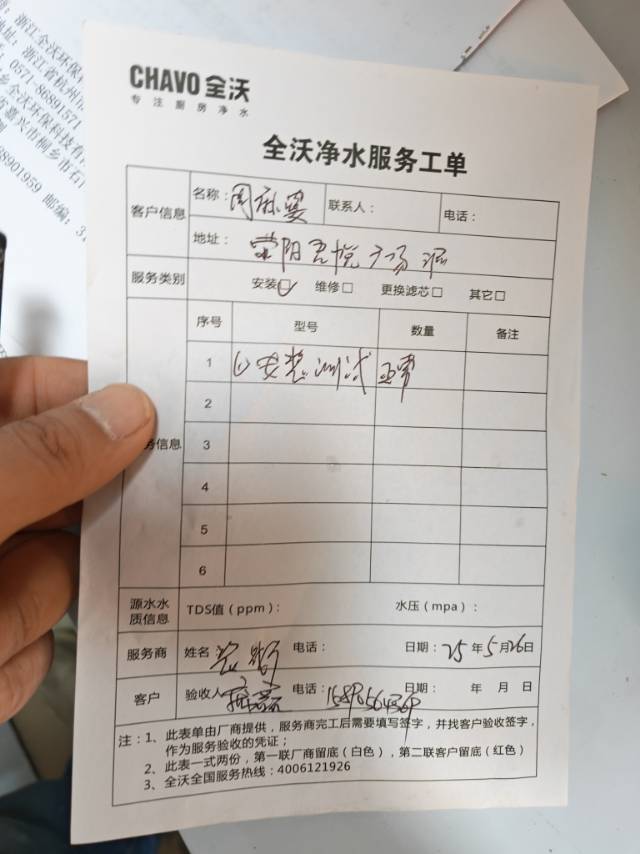 浙江全沃环保科
地址：浙江省杭州
0571-86891571
CHAVO 全沃
专注厨房净水
全沃净水服务工单
客户信息 名称：周麻婆 联系人： 电话：
地址： 荥阳吾悦广场店
服务类别 安装☑ 维修□ 更换滤芯□ 其它□
序号 型号 数量 备注
1 ①安装测试正常
2
务信息 3
4
5
6
源水水质信息 TDS值（ppm）： 水压（mpa）：
服务商 姓名 电话： 日期：25年5月26日
客户 验收人 电话： 日期： 年 月 日
注：1、此表单由厂商提供，服务商完工后需要填写签字，并找客户验收签字，
作为服务验收的凭证；
2、此表一式两份，第一联厂商留底（白色），第二联客户留底（红色）
3、全沃全国服务热线：4006121926